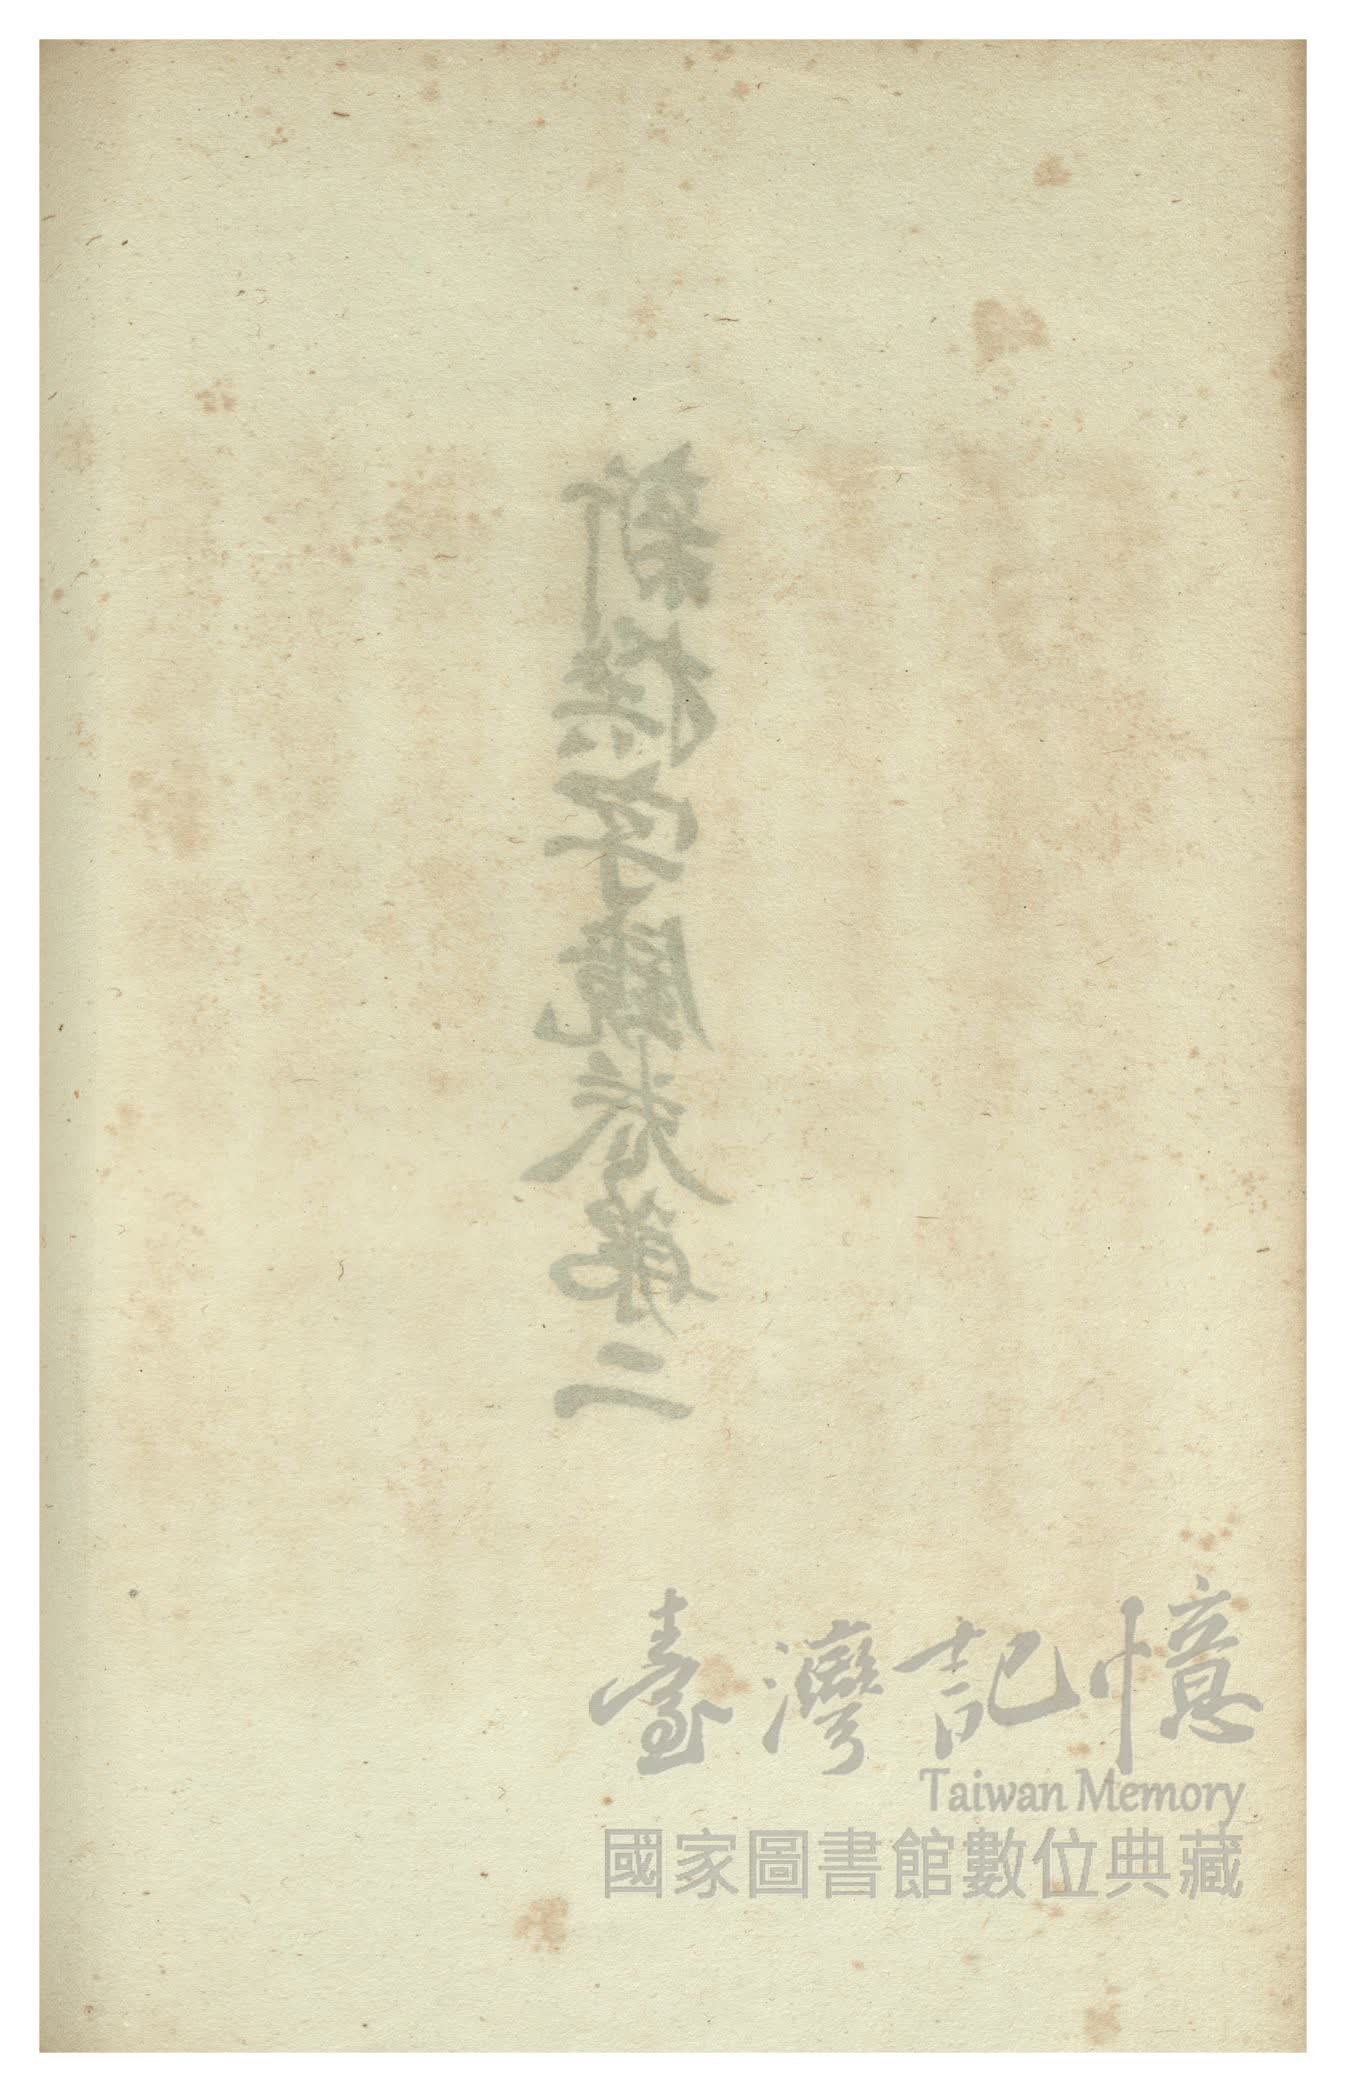 新撰字鏡卷第二
臺灣記憶
Taiwan Memory
國家圖書館數位典藏